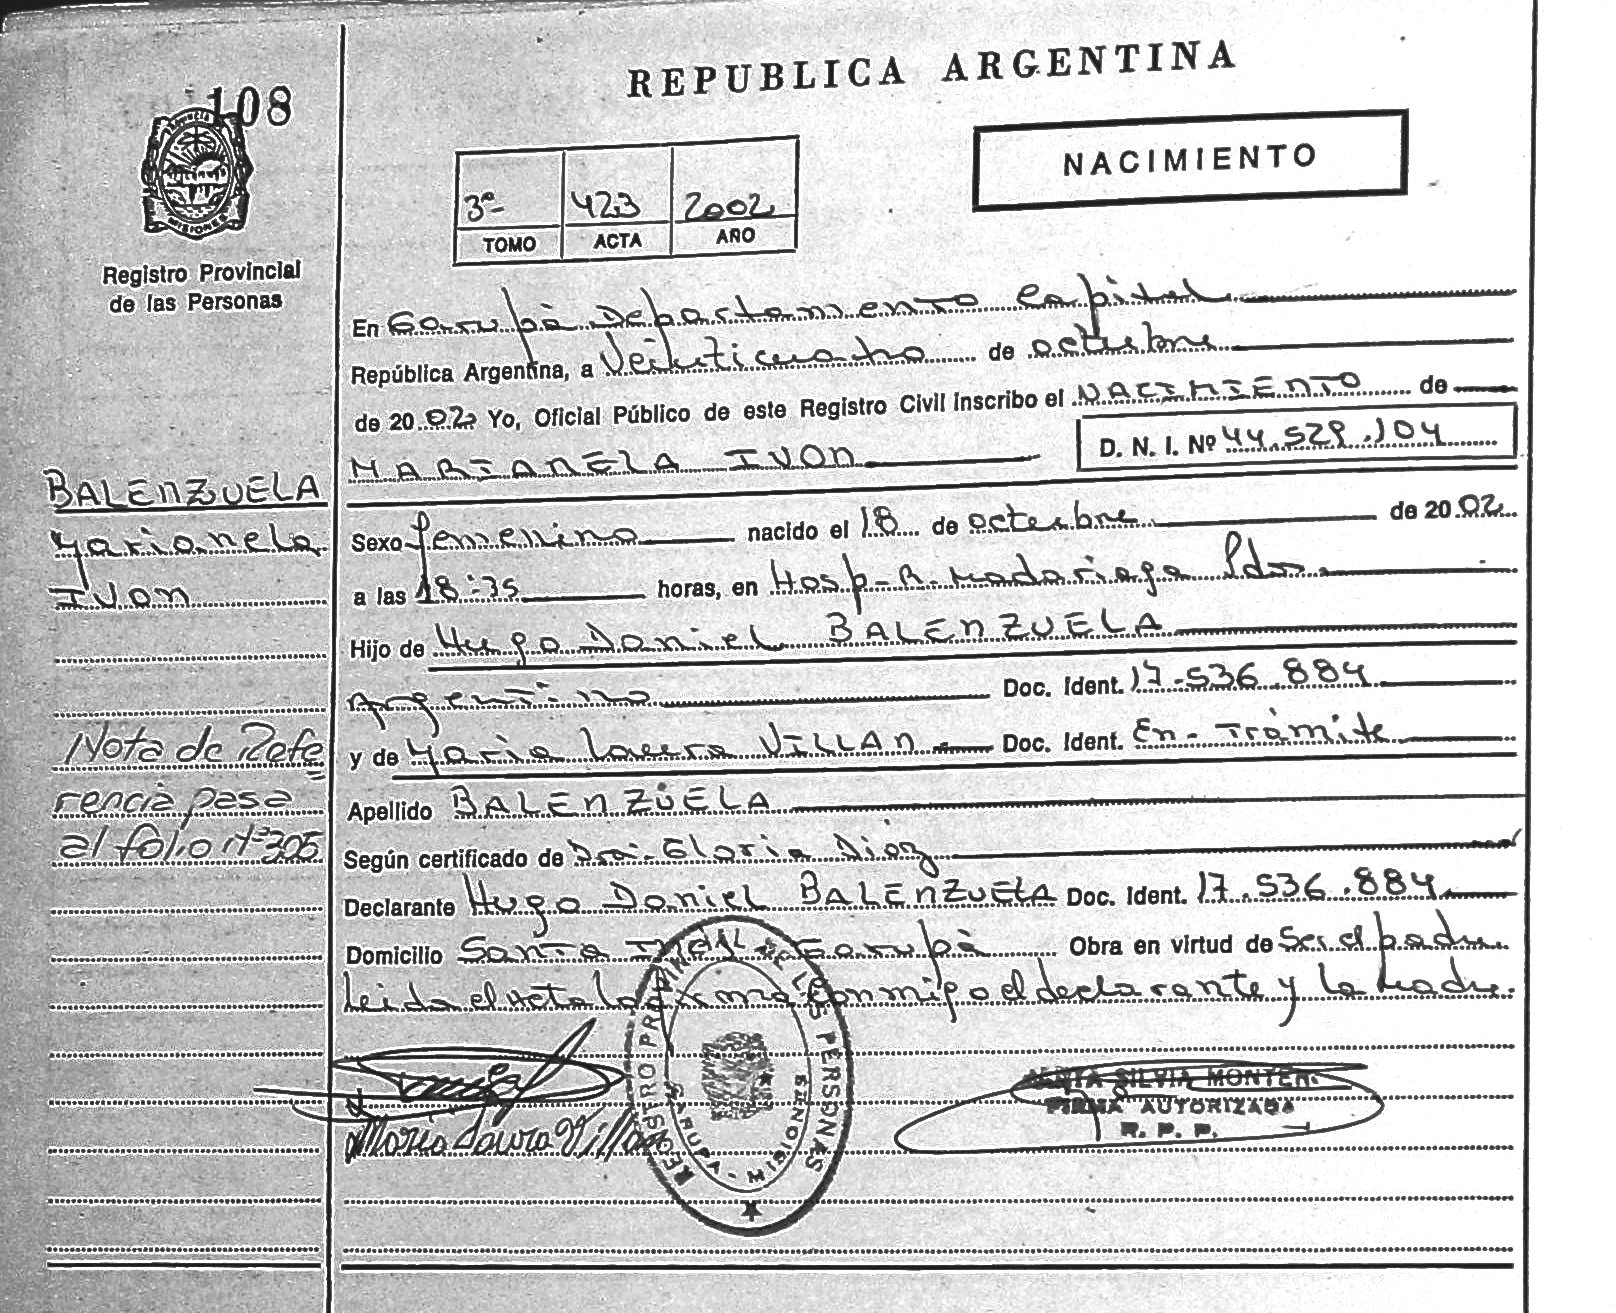 108
PROVINCIA
MISIONES
Registro Provincial
de las Personas
BALENZUELA
Marianela
Ivon
Nota de Refe
rencia pasa
al folio Nº 305
REPUBLICA ARGENTINA
NACIMIENTO
3º- 423 2002
TOMO ACTA AÑO
En Garupá Departamento Capital
República Argentina, a Veinticuatro de octubre
de 2002 Yo, Oficial Público de este Registro Civil Inscribo el NACIMIENTO de
MARIANELA IVON D. N. I. Nº 44.529.104
Sexo femenino nacido el 18 de octubre de 2002
a las 18:35 horas, en Hosp-R. Madariaga Pdas.
Hijo de Hugo Daniel BALENZUELA
Argentino Doc. Ident. 17.536.884
y de Maria Laura VILLAN Doc. Ident. En-Trámite
Apellido BALENZUELA
Según certificado de Dra. Gloria Diaz
Declarante Hugo Daniel BALENZUELA Doc. Ident. 17.536.884
Domicilio Santa Garupá Obra en virtud de Ser el padre
Leida el Acta la firma conmigo el declarante y la Madre.
REGISTRO PROVINCIAL DE LAS PERSONAS
GARUPA - MISIONES
SILVIA MONTER
FIRMA AUTORIZADA
R. P. P.
Maria Laura Villan